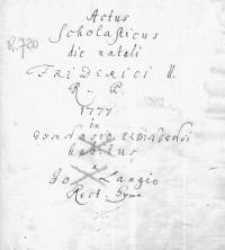 Actus
Scholasticus
die natali
FRIDERICI II.
R. P.
1777
in
habitus
a
Jo Langio
Rect. Gymn
R.720